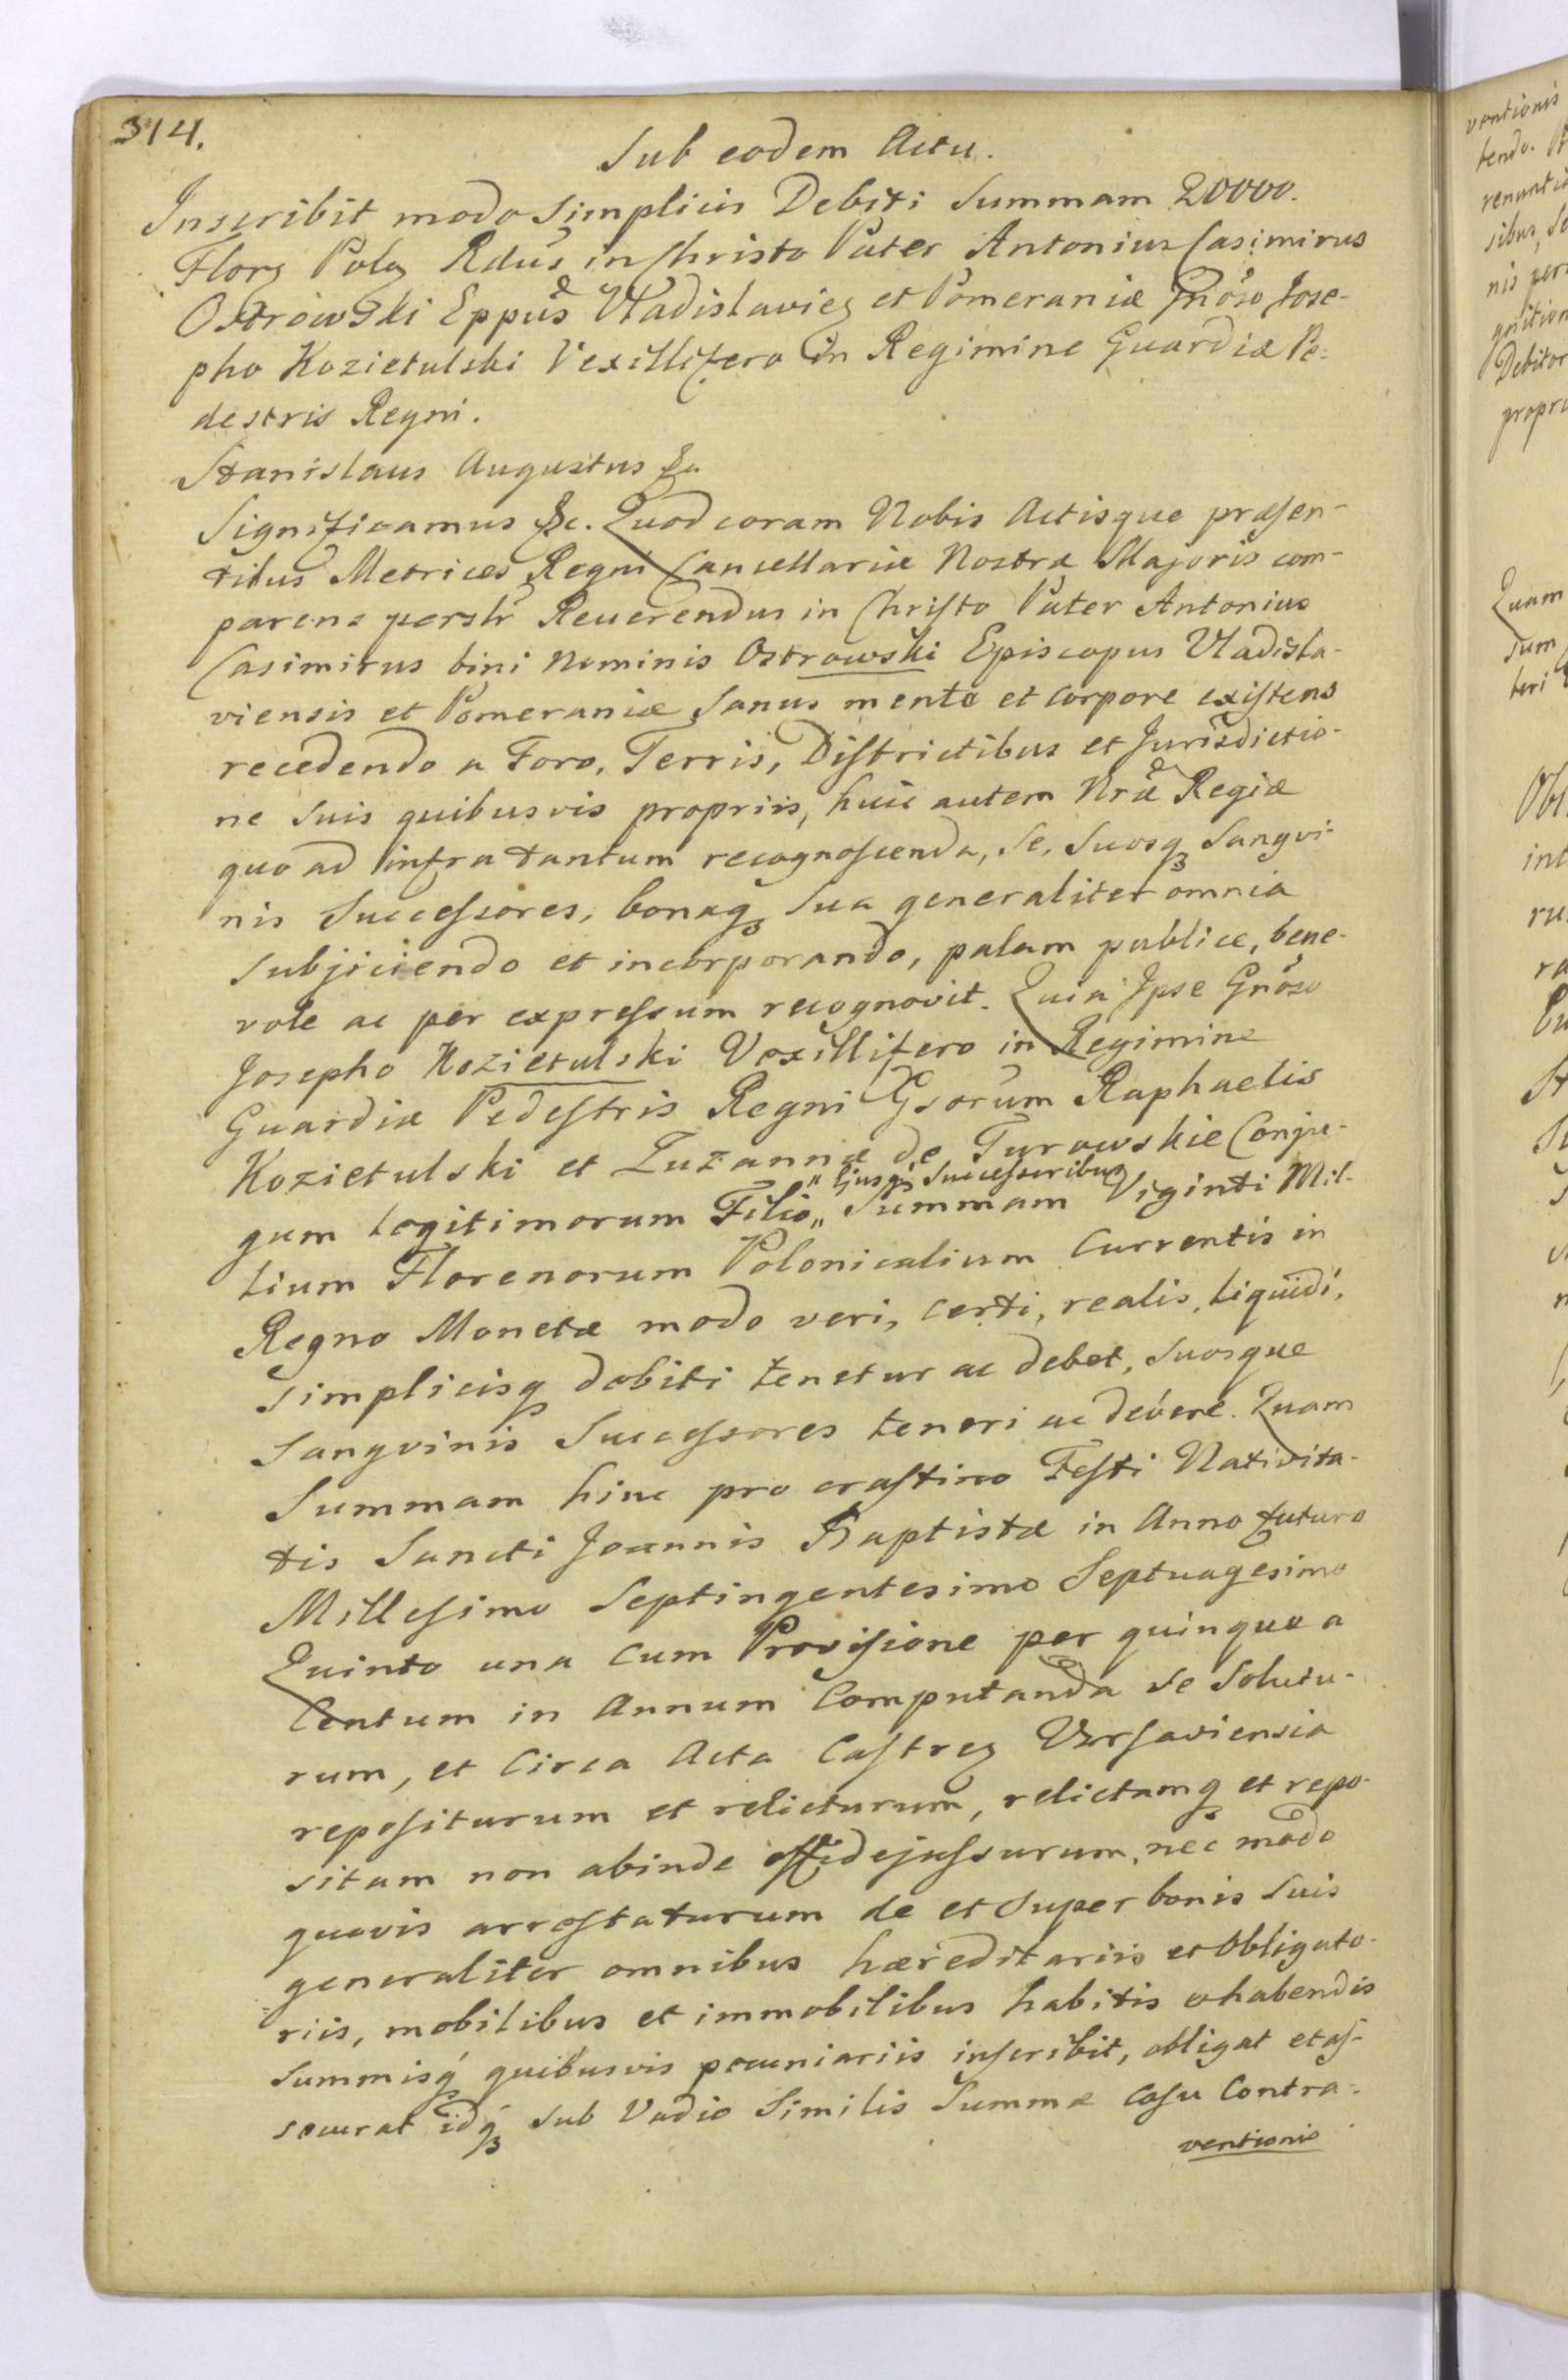 314.
Sub eodem Actu.
Inscribit modo Simplicis Debiti Summam 20000.
Flor Pol Rdūs in Christo Pater Antonius Casimirus
Ostrowski Eppūs Vladislavieꝫ et Pomeraniæ Gnōso Jose-
pho Kozietulski Vexillifero in Regimine Guardiæ Pe-
destris Regni.
Stanislaus Augustus &a
Significamus &c. Quod coram Nobis Actisque præsen-
tibus Metrices Regni Cancellariæ Nostræ Majoris com-
parens perslr Reverendus in Christo Pater Antonius
Casimirus bini Nominis Ostrowski Episcopus Vladisla-
viensis et Pomeraniæ Sanus mente et Corpore existens
recedendo a Foro, Terris, Districtibus et Jurisdictio-
ne Suis quibusvis propriis, huic autem Nrǣ Regiæ
quo ad infra tantum recognoscenda, Se, Suosqꝫ Sangvi-
nis Successores, bonaqꝫ Sua generaliter omnia
Subjiciendo et incorporando, palam publice, bene-
vole ac per expressum recognovit. Quia Ipse Gnōso
Josepho Kozietulski Vexillifero in Regimine
Guardiæ Pedestris Regni Gsorum Raphaelis
Kozietulski et Zuzannæ de Turowskie Conju-
gum Legitimorum Filio „ Summam Viginti Mil-
„ Ejusqꝫ Successoribus
lium Florenorum Polonicalium Currentis in
Regno Monetæ modo veri, certi, realis, liquidi,
Simplicisqꝫ debiti tenetur ac debet, Suosque
Sangvinis Successores teneri ac debere. Quam
Summam hinc pro crastino Festi Nativita-
tis Sancti Joannis Baptistæ in Anno futuro
Millesimo Septingentesimo Septuagesimo
Quinto una cum Provisione per quinque a
Centum in Annum Computanda Se Solutu-
rum, et Circa Acta Castreꝫ Varsaviensia
repositurum et relicturum, relictamqꝫ et repo-
sitam non abinde effidejussurum, nec modo
quovis arrestaturum de et Super bonis Suis
generaliter omnibus hæreditariis et Obligato-
riis, mobilibus et immobilibus habitis & habendis
Summisqꝫ quibusvis pecuniariis inscribit, obligat et as-
securat idqꝫ Sub Vadio Similis Summæ Casu Contra-
ventionis